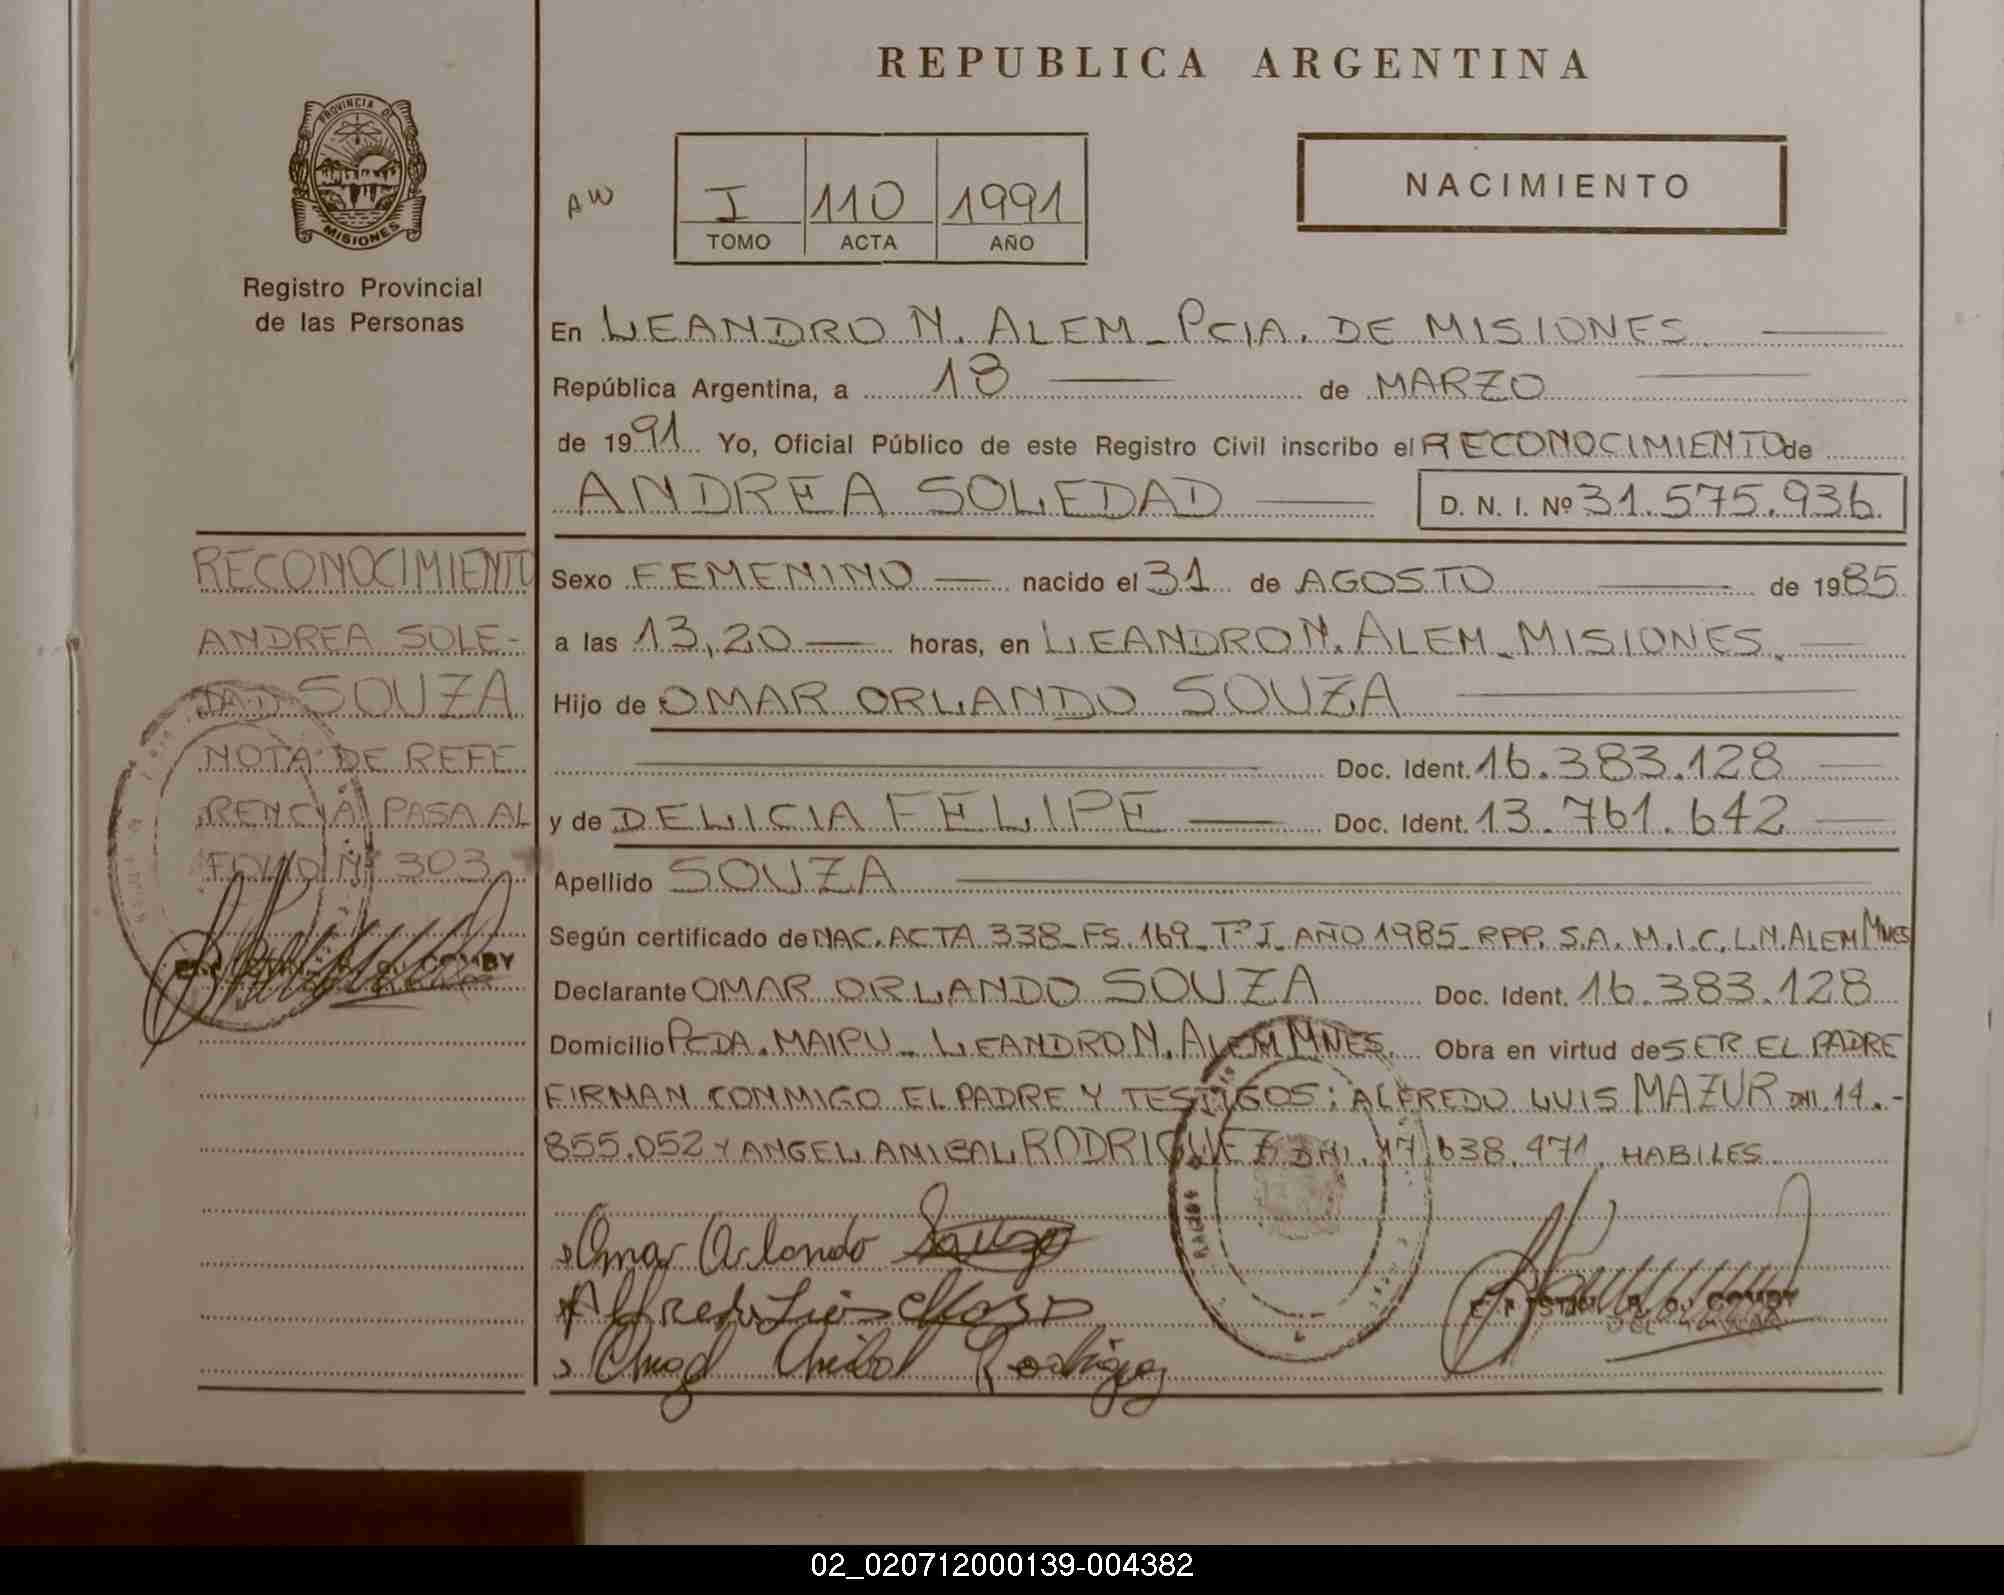 REPUBLICA ARGENTINA
PROVINCIA DE
MISIONES
Registro Provincial
de las Personas
AW
I 110 1991
TOMO ACTA AÑO
NACIMIENTO
En LEANDRO N. ALEM - PCIA. DE MISIONES
República Argentina, a 18 de MARZO
de 1991 Yo, Oficial Público de este Registro Civil inscribo el RECONOCIMIENTO de
ANDREA SOLEDAD D. N. I. Nº 31.575.936
RECONOCIMIENTO
ANDREA SOLE-
DAD SOUZA
NOTA DE REFE
RENCIA PASA AL
FOLIO Nº 303
Sexo FEMENINO nacido el 31 de AGOSTO de 1985
a las 13,20 horas, en LEANDRO N. ALEM - MISIONES.
Hijo de OMAR ORLANDO SOUZA
Doc. Ident. 16.383.128
y de DELICIA FELIPE Doc. Ident. 13.761.642
Apellido SOUZA
Según certificado de NAC. ACTA 338 - FS. 169 - Tº I - AÑO 1985 - RPP. S.A. M.I.C. L.N. ALEM MNES
Declarante OMAR ORLANDO SOUZA Doc. Ident. 16.383.128
Domicilio PCDA. MAIPU - LEANDRO N. ALEM MNES. Obra en virtud de SER EL PADRE
FIRMAN CONMIGO EL PADRE Y TESTIGOS: ALFREDO LUIS MAZUR DNI. 14.-
855.052 Y ANGEL ANIBAL RODRIGUEZ DNI. 17.638.471. HABILES
Omar Orlando Souza
Alfredo Luis
Angel Anibal Rodriguez
02_020712000139-004382